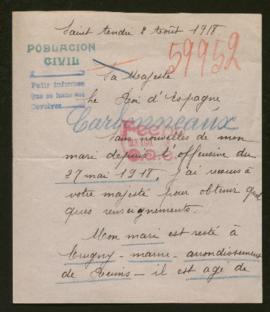 Saint tendre 2 Août 1918
POBLACION
CIVIL
59952
Sa Majesté
Le Roi d'Espagne
Pedir informes
Que se haga
Devolver
Carbonneaux
Sans nouvelles de mon
mari depuis l'offensive du
27 mai 1918. J'ai recours à
votre majesté pour obtenir quel
ques renseignements.
Mon mari est resté à
Crugny - marne - arondissement
de Reims - il est agé de